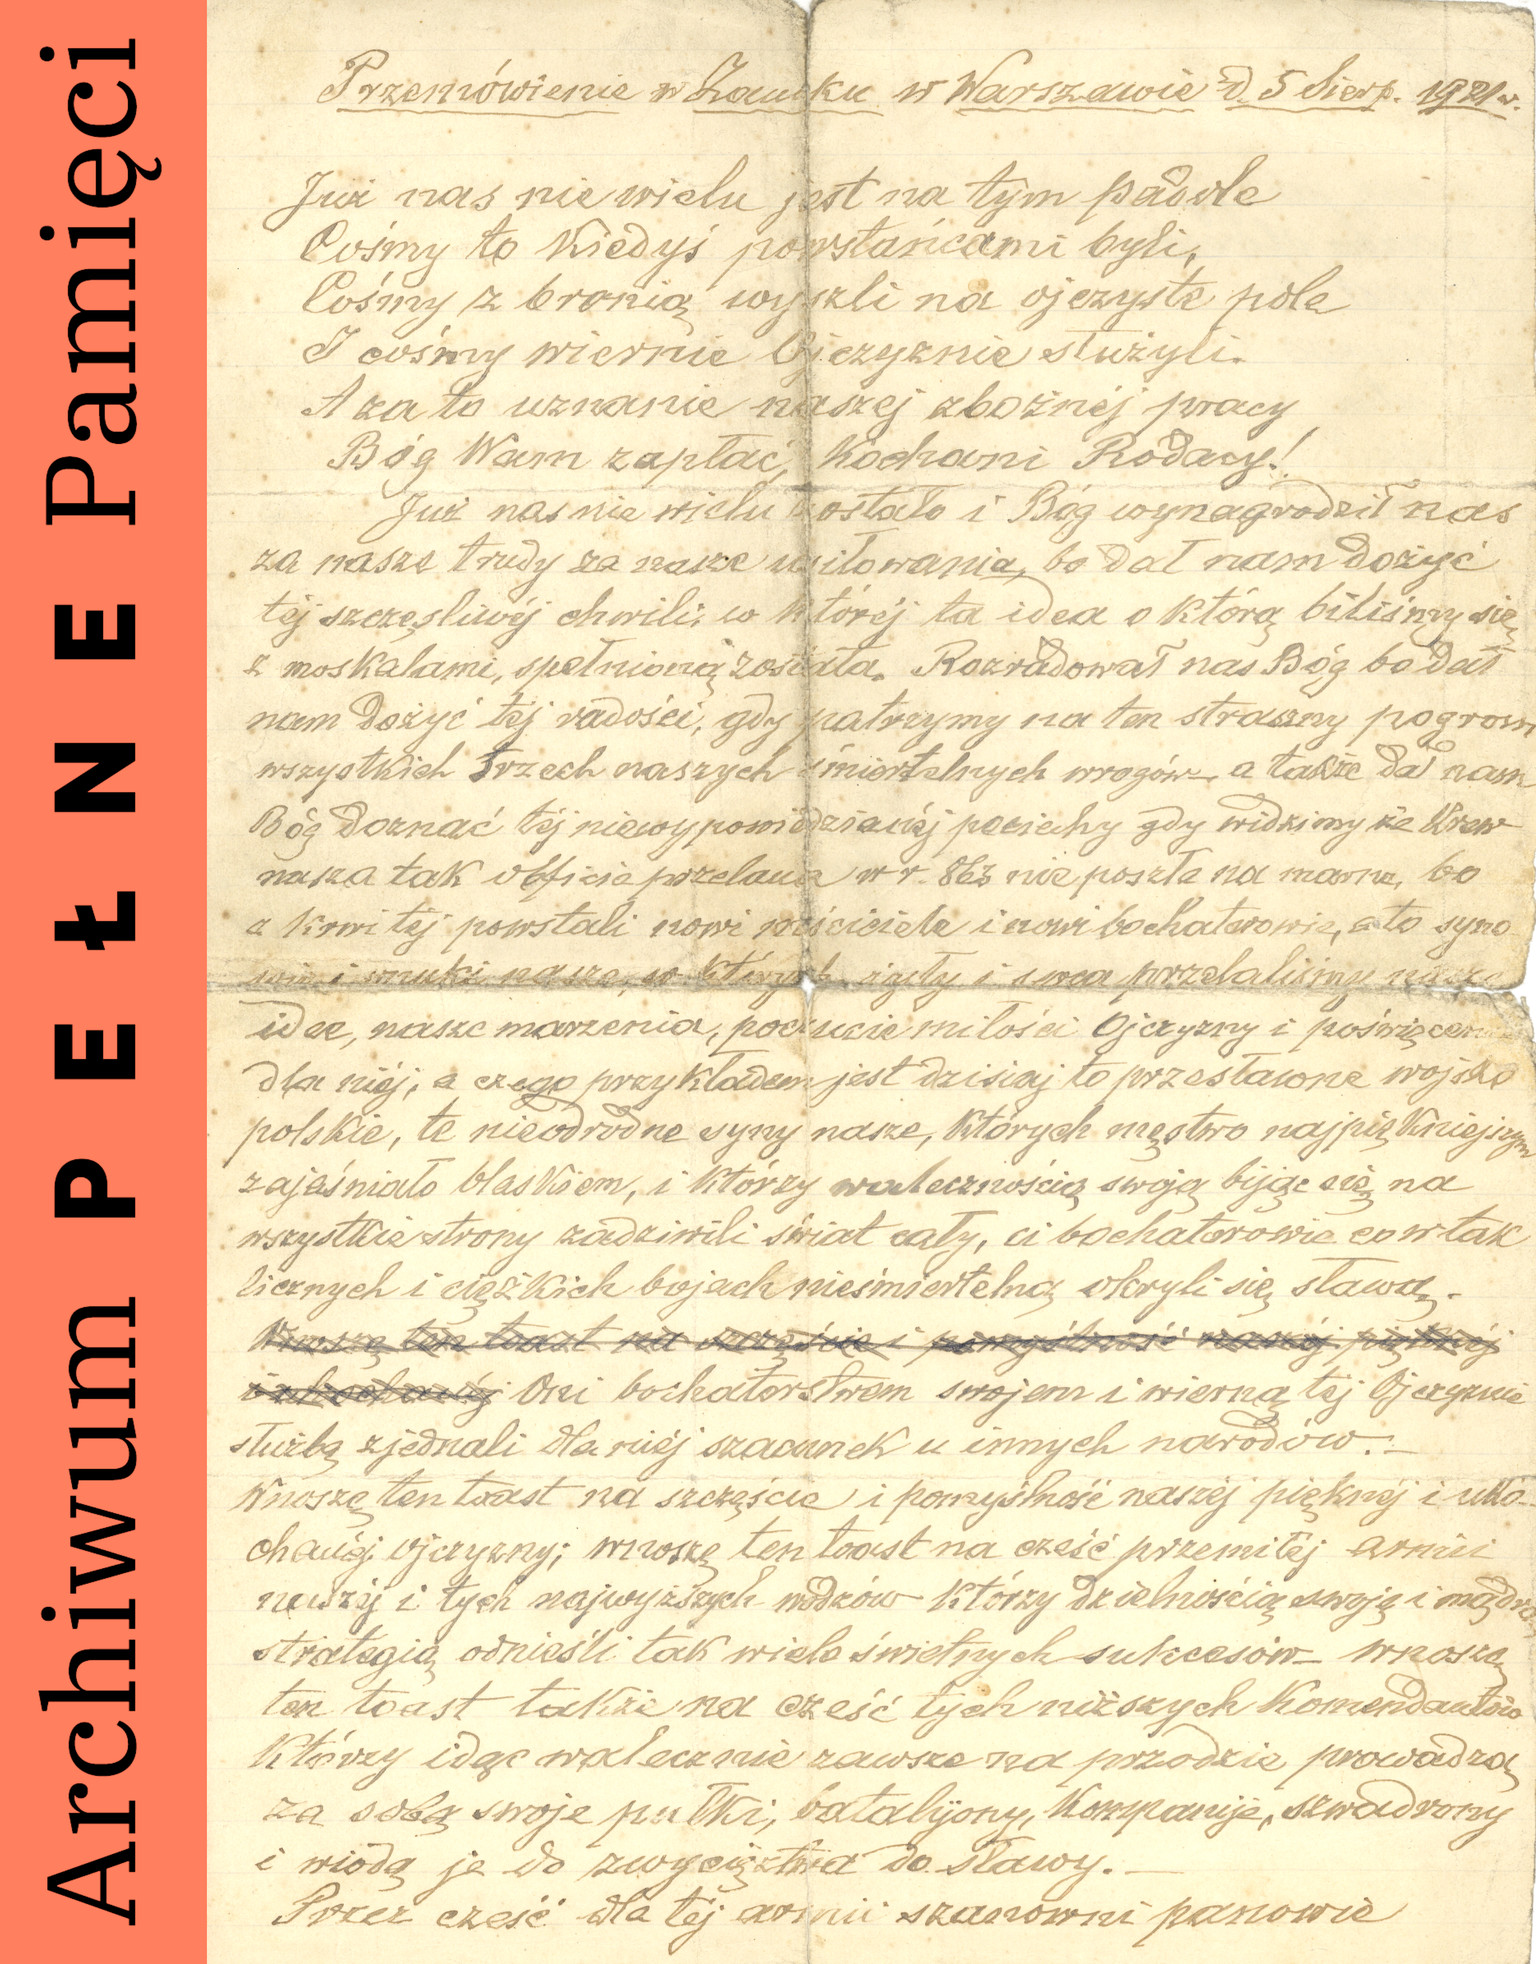 Archiwum PEŁNE Pamięci
Przemówienie w Zamku w Warszawie d. 5 Sierp. 1921 r.
Już nas nie wielu jest na tym padole
Cośmy to kiedyś powstańcami byli,
Cośmy z bronią wyszli na ojczyste pole
I cośmy wiernie Ojczyznie służyli.
A za to uznanie naszej zbożnéj pracy
Bóg Wam zapłać, kochani Rodacy!
Już nas nie wielu zostało i Bóg wynagrodził nas
za nasze trudy za nasze usiłowania, bo dał nam dożyć
téj szczęsliwéj chwili, w któréj ta idea o którą biliśmy się
z moskalami, spełnioną została. Rozradował nas Bóg bo dał
nam dożyć téj radości, gdy patrzymy na ten straszny pogrom
wszystkich trzech naszych śmiertelnych wrogów – a także dał nam
Bóg doznać téj niewypowiedzianéj pociechy gdy widzimy że krew
nasza tak obficie przelana w r. 863 nie poszła na marne, bo
z krwi téj powstali nowi mściciele i nowi bochaterowie, a to syno
wie i wnuki nasze, w których żyły i serca przelaliśmy nasze
idee, nasze marzenia, poczucie miłości Ojczyzny i poświęcenia
dla niéj, a czego przykładem jest dzisiaj to przesławne wojsko
polskie, te nieodrodne syny nasze, których męstwo najpiękniejszym
zajaśniało blaskiem, i którzy walecznością swoją bijąc się na
wszystkie strony zadziwili świat cały, ci bochaterowie co w tak
licznych i ciężkich bojach nieśmiertelną okryli się sławą. –
Wnoszę ten toast na szczęście i pomyślność naszéj pięknéj
i ukochanéj Oni bochaterstwem swojem i wierną téj Ojczyznie
służbą zjednali dla niéj szacunek u innych narodów. –
Wnoszę ten toast na szczęście i pomyślność naszéj pięknéj i uko-
chanéj ojczyzny; wnoszę ten toast na cześć przemiłéj armii
naszéj i tych najwyższych wodzów którzy dzielnością swoją i mądrą
strategią odnieśli tak wiele świetnych sukcesów – wnoszę
ten toast także na cześć tych niższych komendantów
którzy idąc walecznie zawsze na przodzie prowadzą
za sobą swoje pułki, batalijony, kompanije, szwadrony
i wiodą je do zwycięztwa do sławy. –
Przez cześć dla téj armii szanowni panowie